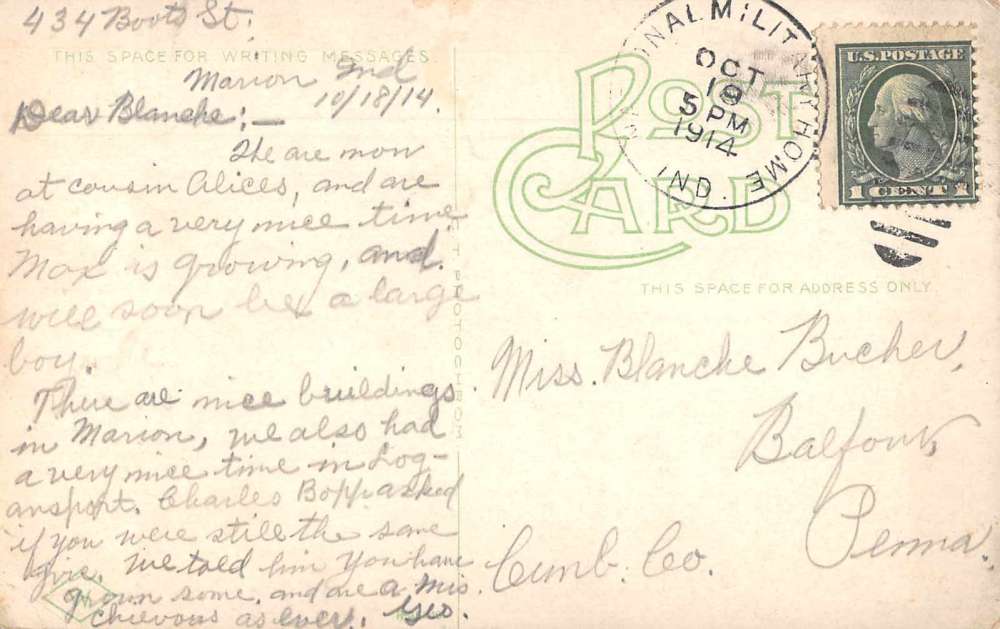 434 Boots St.
THIS SPACE FOR WRITING MESSAGES.
Marion Ind
10/18/14.
Dear Blanche:—
We are now
at cousin Alices, and are
having a very nice time.
Max is growing, and
will soon be a large
boy.
There are nice buildings
in Marion, we also had
a very nice time in Log-
ansport. Charles Bopp asked
if you were still the same
We told him You have
grown some, and are a Mis-
chievous as ever. Geo.
POST
CARD
NATIONAL MILITARY HOME
OCT
19
5 PM
1914
IND.
U.S. POSTAGE
1 CENT 1
THIS SPACE FOR ADDRESS ONLY
Miss. Blanche Bucher,
Balfour,
Penna.
Cumb. Co.